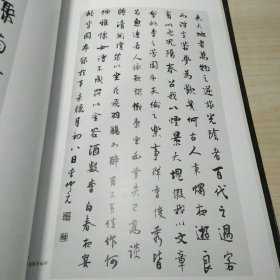 夫天地者萬物之逆旅光陰者百代之過客
而浮生若夢為歡幾何古人秉燭夜遊良
有以也況陽春召我以煙景大塊假我以文章
會桃李之芳園序天倫之樂事群季俊秀皆
為惠連吾人詠歌獨慚康樂幽賞未已高談
轉清開瓊筵以坐花飛羽觴而醉月不有佳作何
伸雅懷如詩不成罰以金谷酒數李白春夜宴
桃李園序月初八日